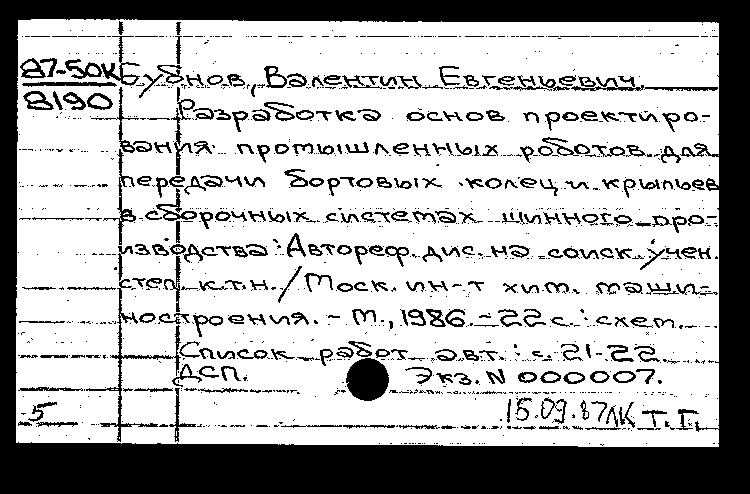 87-50К Бубнов, Валентин Евгеньевич.
8190
Разработка основ проектиро-
вания промышленных роботов для
передачи бортовых колец и крыльев
в сборочных системах шинного про-
изводства: Автореф. дис. на соиск. учен.
степ. к.т.н. / Моск. ин-т хим. маши-
ностроения. - М., 1986. - 22 с.: схем.
Список работ авт.: с. 21-22.
ДСП. Экз. N 000007.
5 15.09.87 ЛК Т.Г.